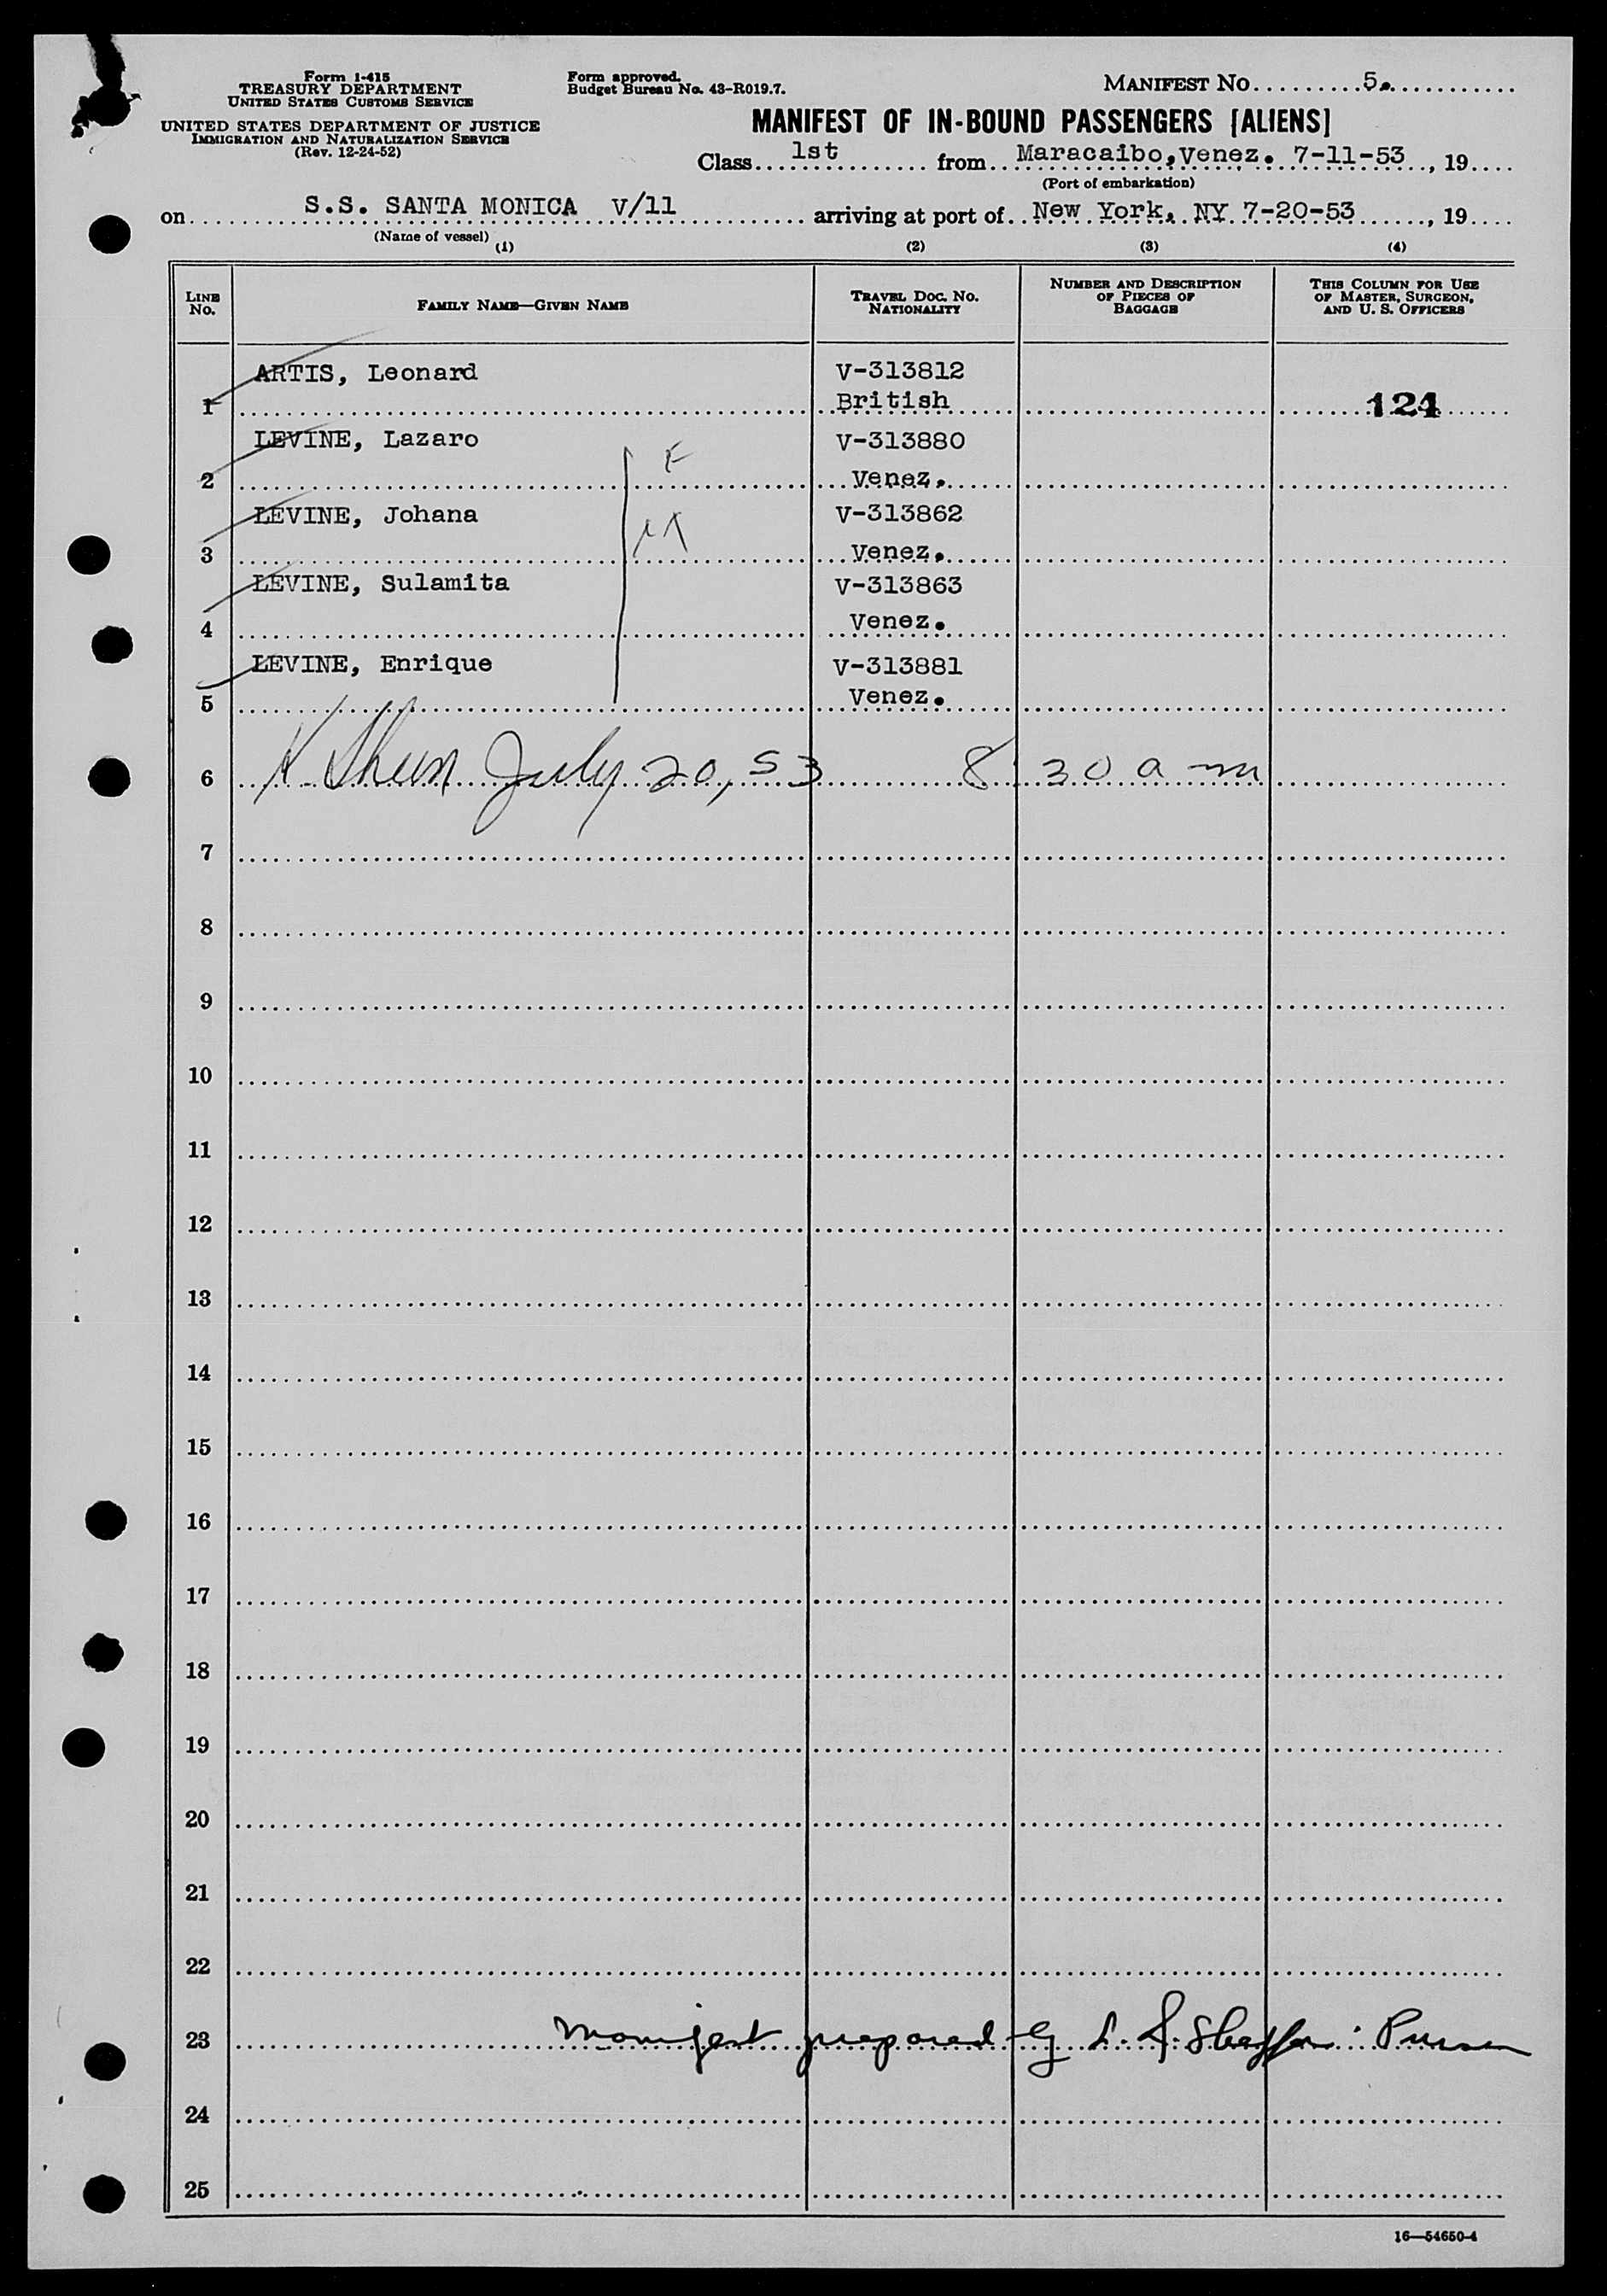 Form I-415
TREASURY DEPARTMENT
UNITED STATES CUSTOMS SERVICE
UNITED STATES DEPARTMENT OF JUSTICE
IMMIGRATION AND NATURALIZATION SERVICE
(Rev. 12-24-52)
Form approved.
Budget Bureau No. 43-R019.7.
MANIFEST NO. 5.
MANIFEST OF IN-BOUND PASSENGERS [ALIENS]
Class 1st from Maracaibo, Venez. 7-11-53, 19
(Port of embarkation)
on S.S. SANTA MONICA V/11 arriving at port of New York, NY 7-20-53, 19
(Name of vessel)
(1) (2) (3) (4)
LINE NO. FAMILY NAME—GIVEN NAME TRAVEL DOC. NO. NATIONALITY NUMBER AND DESCRIPTION OF PIECES OF BAGGAGE THIS COLUMN FOR USE OF MASTER, SURGEON, AND U. S. OFFICERS
ARTIS, Leonard V-313812
1 British 124
LEVINE, Lazaro F V-313880
2 Venez.
LEVINE, Johana M V-313862
3 Venez.
LEVINE, Sulamita V-313863
4 Venez.
LEVINE, Enrique V-313881
5 Venez.
6 July 20, 53 8:30 a m
7
8
9
10
11
12
13
14
15
16
17
18
19
20
21
22
23 Manifest prepared by Purser
24
25
16—54650-4